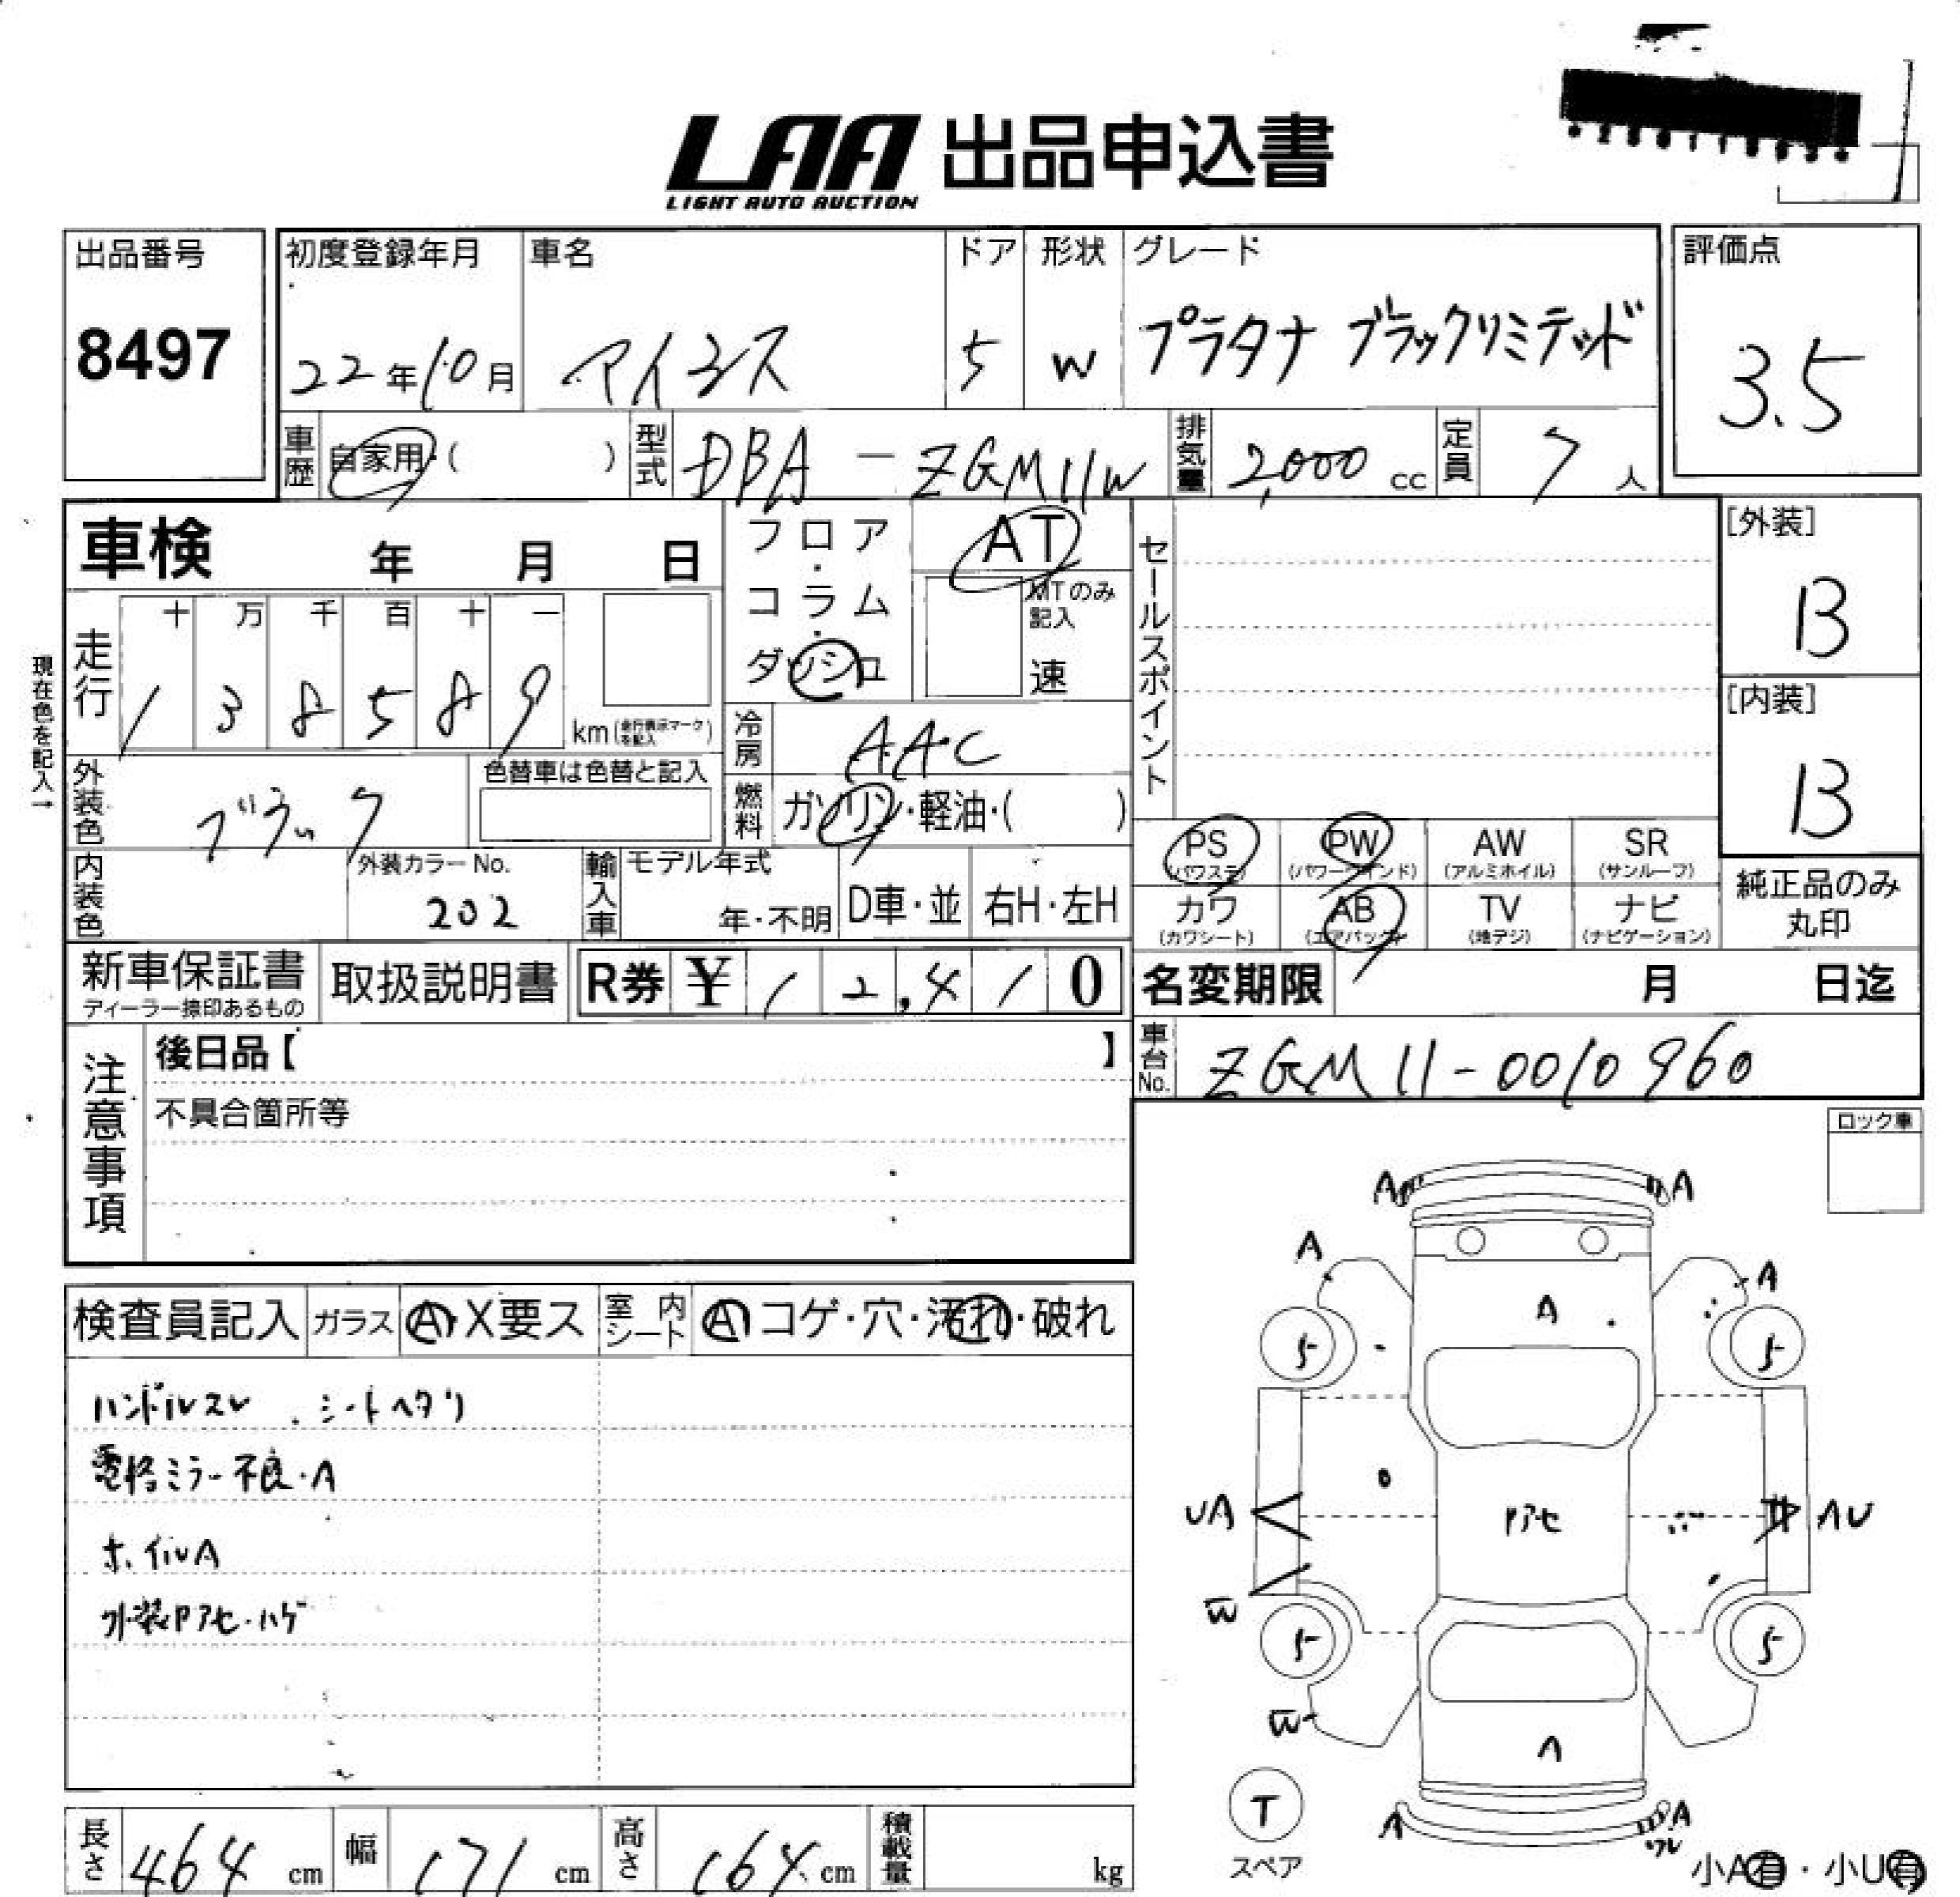 LAA 出品申込書
LIGHT AUTO AUCTION
出品番号
8497
初度登録年月
22年10月
車名
アイシス
ドア
5
形状
W
グレード
プラタナ ブラックリミテッド
評価点
3.5
車歴 自家用・( )
型式 DBA-ZGM11W
排気量 2,000 cc
定員 7 人
車検 年 月 日
フロア・コラム・ダッシュ
AT
MTのみ記入
速
セールスポイント
[外装]
B
[内装]
B
現在色を記入→
走行
十 万 千 百 十 一
1 3 8 5 8 9
km(走行表示マークを記入)
冷房 AAC
外装色 ブラック
色替車は色替と記入
燃料 ガソリン・軽油・( )
PS (パワステ)
PW (パワーウインド)
AW (アルミホイル)
SR (サンルーフ)
カワ (カワシート)
AB (エアバック)
TV (地デジ)
ナビ (ナビゲーション)
純正品のみ
丸印
内装色
外装カラーNo.
202
輸入車
モデル年式
年・不明
D車・並
右H・左H
新車保証書
ディーラー捺印あるもの
取扱説明書
R券 ¥ 12,410
名変期限 月 日迄
車台No. ZGM11-0010960
注意事項
後日品【 】
不具合箇所等
ロック車
検査員記入
ガラス A・X要ス
室内シート A コゲ・穴・汚れ・破れ
ハンドルスレ . シートヘタリ
電格ミラー不良・A
ホイルA
外装Pアセ・ハゲ
A A
A A
A
5 5
UA Pアセ AU
W
5 5
W
A
T
スペア
A A
ワレ
小A有・小U有
長さ 464 cm
幅 171 cm
高さ 164 cm
積載量 kg